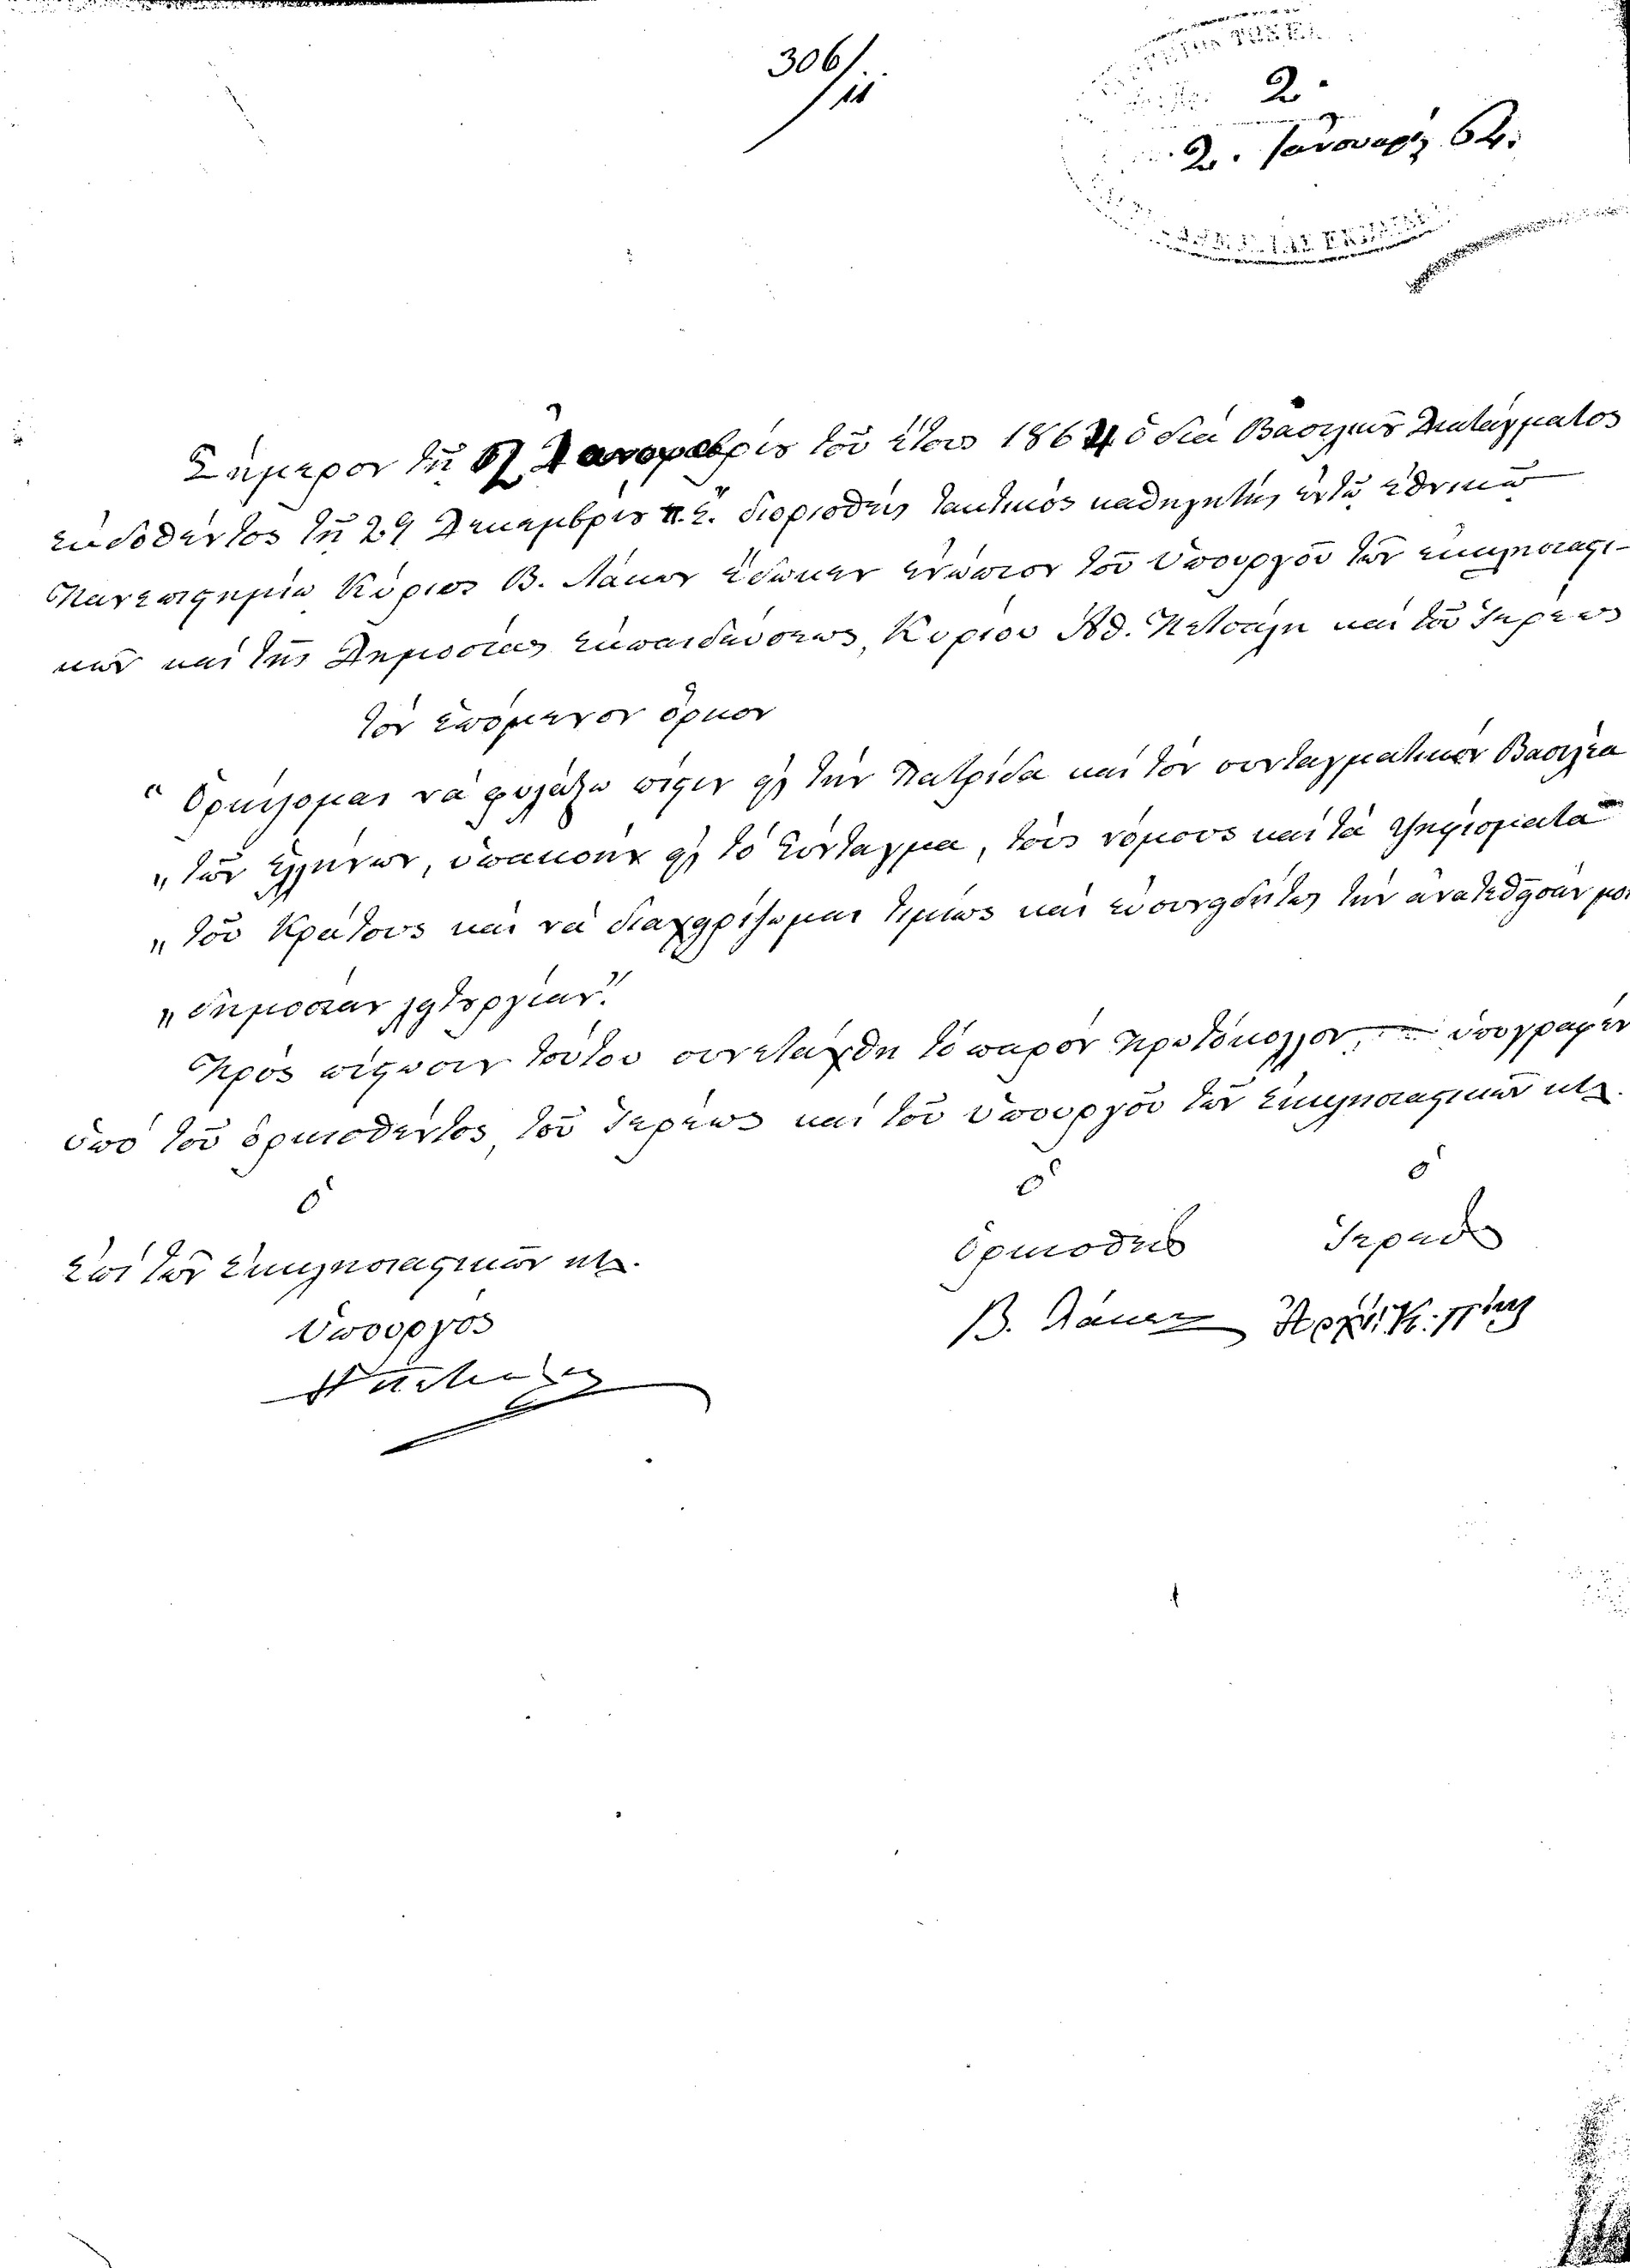 306/11
2.
2. Ἰανουαρ. 64.
Σήμερον τῇ 2 Ἰανουαρίου τοῦ ἔτους 1864 ὁ διὰ Βασιλικοῦ Διατάγματος
ἐκδοθέντος τῇ 29 Δεκεμβρίου π. ἔ. διορισθεὶς τακτικὸς καθηγητὴς ἐν τῷ Ἐθνικῷ
Πανεπιστημίῳ Κύριος Β. Λάκων ἔδωκεν ἐνώπιον τοῦ Ὑπουργοῦ τῶν Ἐκκλησιαστι-
κῶν καὶ τῆς Δημοσίας Ἐκπαιδεύσεως, Κυρίου Ἀθ. Πετσάλη καὶ τοῦ Ἱερέως
τὸν ἑπόμενον ὅρκον
“ Ὁρκίζομαι νὰ φυλάξω πίστιν εἰς τὴν Πατρίδα καὶ τὸν συνταγματικὸν Βασιλέα
„ τῶν Ἑλλήνων, ὑπακοὴν εἰς τὸ Σύνταγμα, τοὺς νόμους καὶ τὰ ψηφίσματα
„ τοῦ Κράτους καὶ νὰ διαχειρίζωμαι τιμίως καὶ εὐσυνειδήτως τὴν ἀνατεθεῖσάν μοι
„ δημοσίαν λειτουργίαν.”
Πρὸς πίστωσιν τούτου συνετάχθη τὸ παρὸν Πρωτόκολλον, ὑπογραφὲν
ὑπὸ τοῦ ὁρκισθέντος, τοῦ Ἱερέως καὶ τοῦ Ὑπουργοῦ τῶν Ἐκκλησιαστικῶν κτλ.
ὁ ὁ ὁ
ἐπὶ τῶν Ἐκκλησιαστικῶν κτλ. ὁρκισθεὶς Ἱερεὺς
Ὑπουργὸς Β. Λάκων